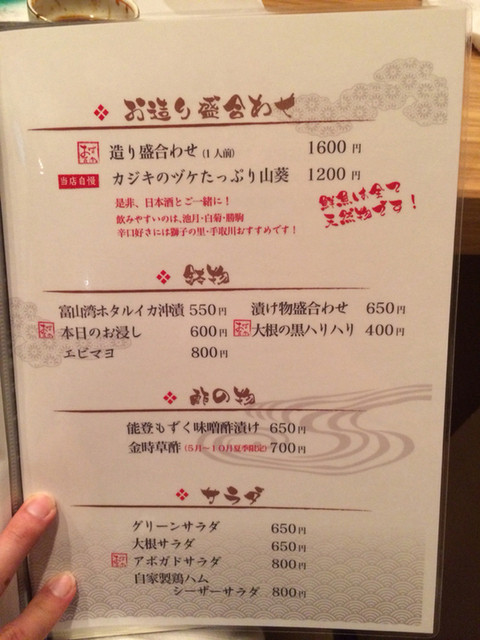 お造り盛合わせ
造り盛合わせ(1人前) 1600円
当店自慢 カジキのヅケたっぷり山葵 1200円
是非、日本酒とご一緒に！
飲みやすいのは、池月・白菊・勝駒
辛口好きには獅子の里・手取川おすすめです！
鮮魚は全て
天然物です！
鉢物
富山湾ホタルイカ沖漬 550円 漬け物盛合わせ 650円
本日のお浸し 600円 大根の黒ハリハリ 400円
エビマヨ 800円
酢の物
能登もずく味噌酢漬け 650円
金時草酢(5月〜10月夏季限定) 700円
サラダ
グリーンサラダ 650円
大根サラダ 650円
アボガドサラダ 800円
自家製鶏ハム
シーザーサラダ 800円